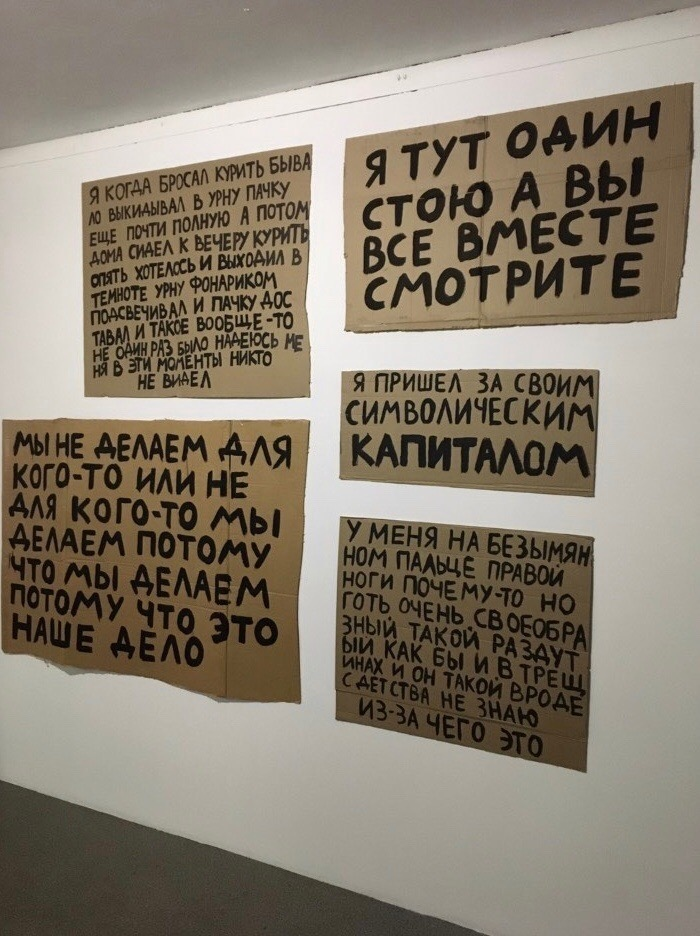 Я КОГДА БРОСАЛ КУРИТЬ БЫВА
ЛО ВЫКИДЫВАЛ В УРНУ ПАЧКУ
ЕЩЕ ПОЧТИ ПОЛНУЮ А ПОТОМ
ДОМА СИДЕЛ К ВЕЧЕРУ КУРИТЬ
ОПЯТЬ ХОТЕЛОСЬ И ВЫХОДИЛ В
ТЕМНОТЕ УРНУ ФОНАРИКОМ
ПОДСВЕЧИВАЛ И ПАЧКУ ДОС
ТАВАЛ И ТАКОЕ ВООБЩЕ-ТО
НЕ ОДИН РАЗ БЫЛО НАДЕЮСЬ МЕ
НЯ В ЭТИ МОМЕНТЫ НИКТО
НЕ ВИДЕЛ
Я ТУТ ОДИН
СТОЮ А ВЫ
ВСЕ ВМЕСТЕ
СМОТРИТЕ
Я ПРИШЕЛ ЗА СВОИМ
СИМВОЛИЧЕСКИМ
КАПИТАЛОМ
МЫ НЕ ДЕЛАЕМ ДЛЯ
КОГО-ТО ИЛИ НЕ
ДЛЯ КОГО-ТО МЫ
ДЕЛАЕМ ПОТОМУ
ЧТО МЫ ДЕЛАЕМ
ПОТОМУ ЧТО ЭТО
НАШЕ ДЕЛО
У МЕНЯ НА БЕЗЫМЯН
НОМ ПАЛЬЦЕ ПРАВОЙ
НОГИ ПОЧЕМУ-ТО НО
ГОТЬ ОЧЕНЬ СВОЕОБРА
ЗНЫЙ ТАКОЙ РАЗДУТ
ЫЙ КАК БЫ И В ТРЕЩ
ИНАХ И ОН ТАКОЙ ВРОДЕ
С ДЕТСТВА НЕ ЗНАЮ
ИЗ-ЗА ЧЕГО ЭТО